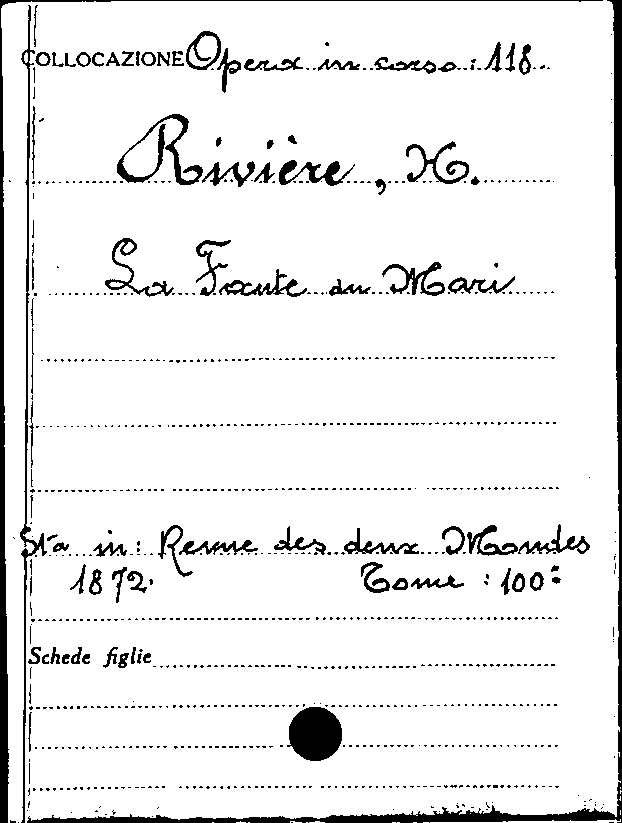 COLLOCAZIONE Opera in corso: 118.
Rivière, H.
La Faute du Mari
Sta in: Revue des deux Mondes
1872. Tome: 100º
Schede figlie